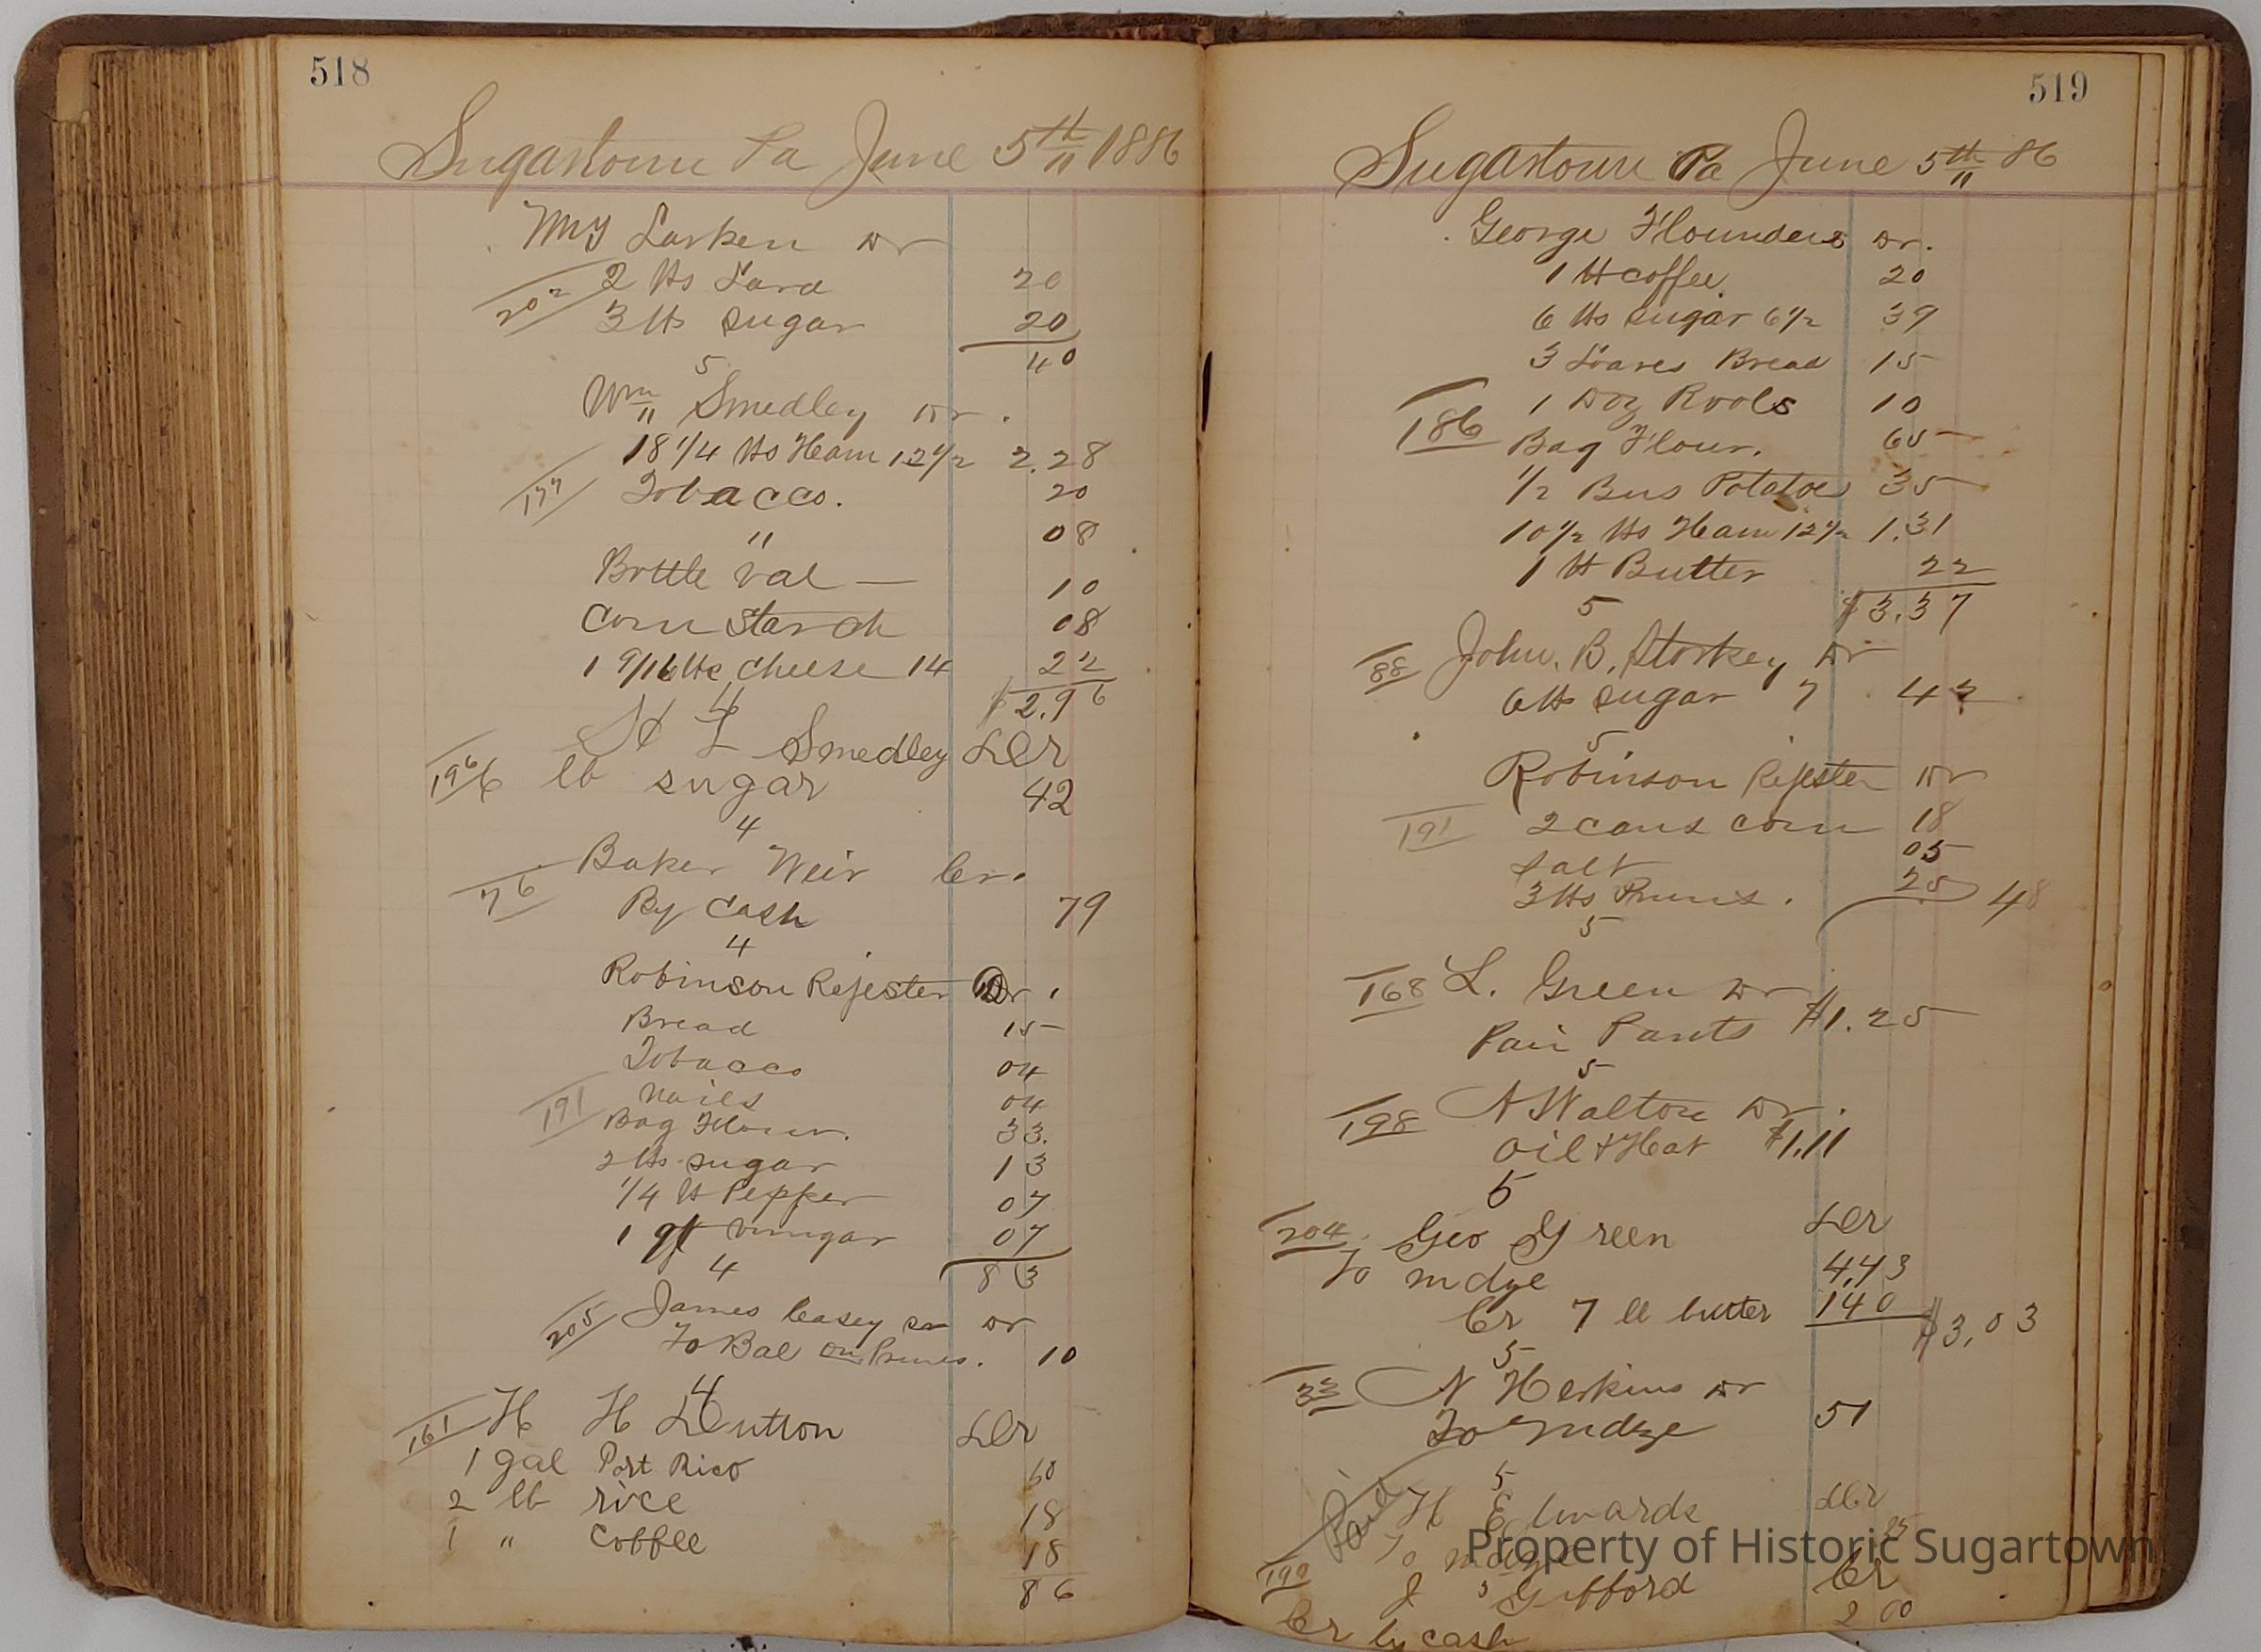 518
Sugartown Pa June 5th 1886
Wm Larken Dr
202 2 lbs Lard 20
3 lb sugar 20
40
5
Wm Smedley Dr.
18 1/4 lbs Ham 12 1/2 2.28
177 Tobacco. 20
" 08
Bottle Val — 10
Corn Starch 08
1 9/16 lbs cheese 14 22
$2.96
4
Smedley Dr
196 6 lb sugar 42
4
Baker Weir Cr.
76 By Cash 79
4
Robinson Rejester Dr.
Bread 15
Tobacco 04
191 Nails 04
Bag Flour. 33.
2 lbs sugar 13
1/4 lb Pepper 07
1 qt vinigar 07
83
4
205 James Casey sr Dr
To Bal on Prunes. 10
4
161 H H Dutton Dr
1 gal Port Rico 50
2 lb rice 18
1 " Coffee 18
86
519
Sugartown Pa June 5th 86
George Flounders Dr.
1 lb coffee 20
6 lbs sugar 6 1/2 39
3 Loaves Bread 15
1 Doz Rools 10
186 Bag Flour. 65
1/2 Bus Potatoes 35
10 1/2 lbs Ham 12 1/2 1.31
1 lb Butter 22
$3.37
5
88 John. B. Storkey Dr
6 lb sugar 7 42
5
Robinson Rejester Dr
191 2 cans corn 18
salt 05
3 lbs Pruns. 25 48
5
168 L. Green Dr
Pair Pants $1.25
5
198 A Walton Dr.
Oil & Hat $1.11
5
204 Geo Green Dr
To mdge 4,43
Cr 7 lb butter 140 $3,03
5
33 N Herkins Dr
To mdze 51
5
Paid H Edwards Dr
To mdze 25
190 J Gifford Cr
Cr by cash 2 00
Property of Historic Sugartown